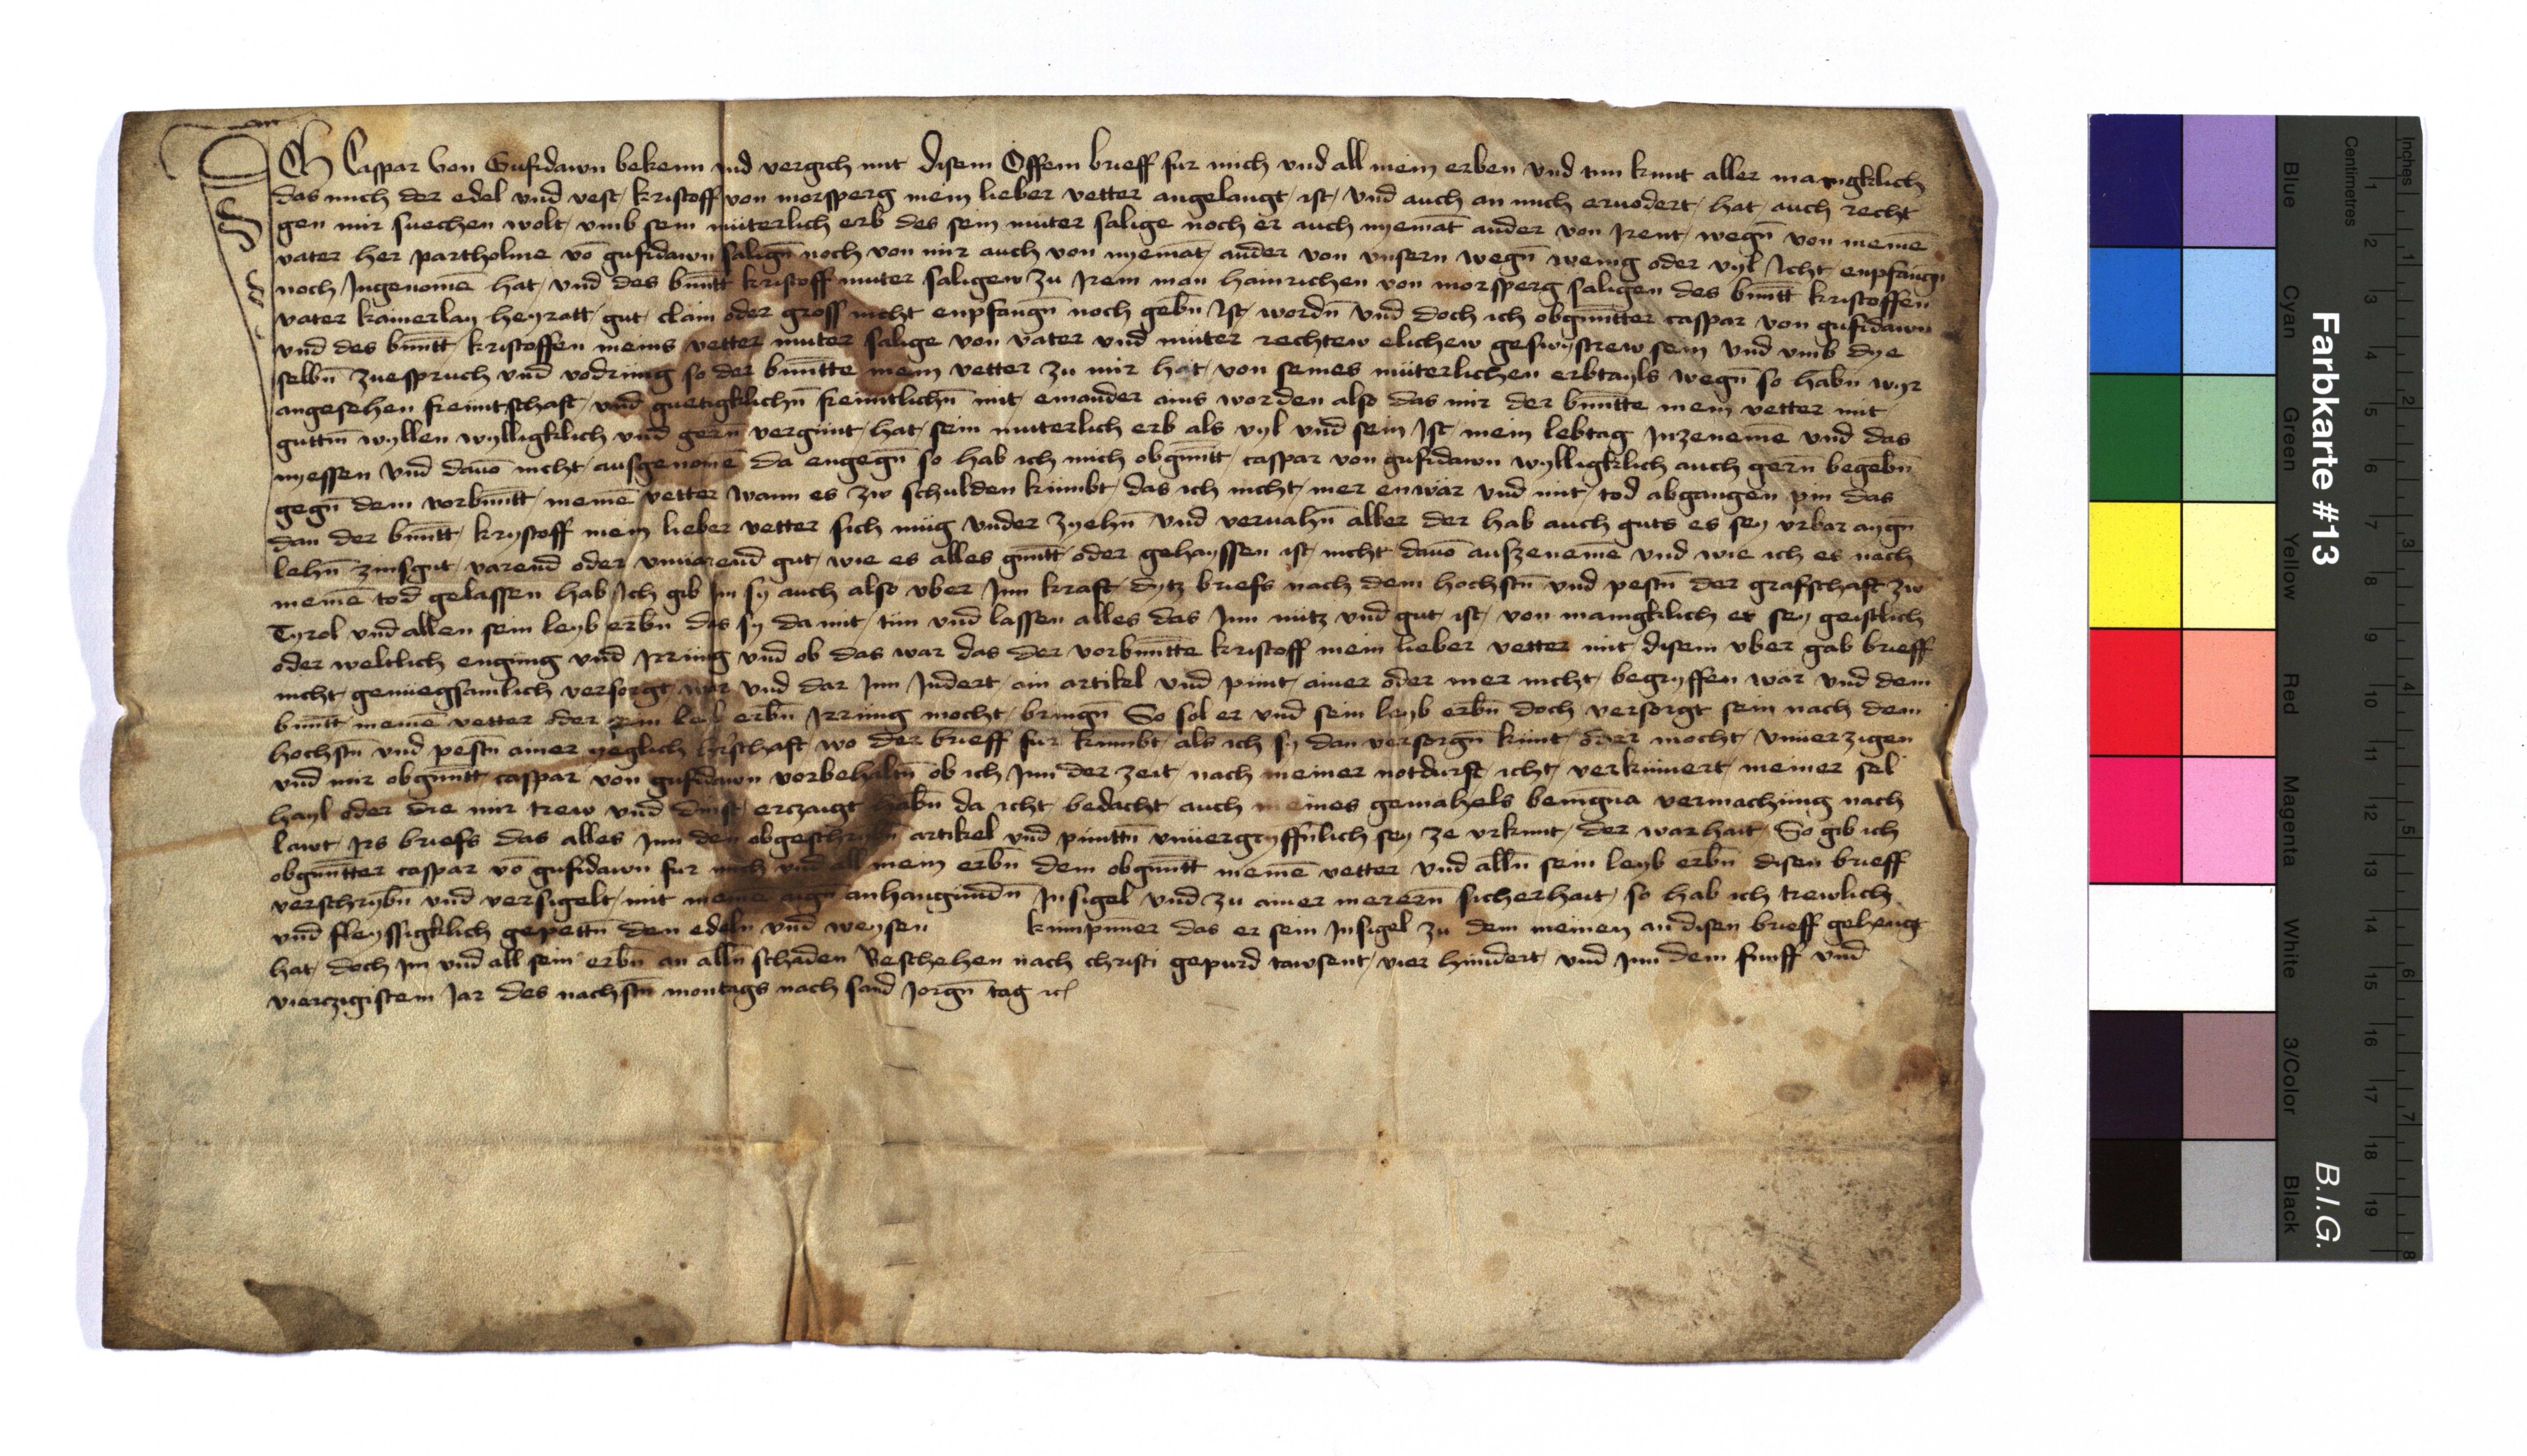 ICh Caspar von Gufidawn bekenn vnd vergich mit disem Offem brieff fur mich vnd all mein erben vnd tun kunt aller manigklich
das mich der edel vnd vest kristoff von morsperg mein lieber vetter angelangt ist vnd auch an mich eruodert hat auch recht
gen mir suechen wolt vmb sein müterlich erb des sein muter salige noch er auch nyemāt ander von Irent wegn̄ von meinē
vater her partholme vō gufidawn salign̄ noch von mir auch von nyemāt ander von vnsern wegn̄ wenig oder vyl Icht enpfangn̄
noch Ingenomē hat vnd des bn̄ntt kristoff muter saligew zu Irem man hainrichen von morsperg saligen des bn̄ntt kristoffen
vater kainerlay heyratt gut clain oder gross nicht enpfangn̄ noch gebn̄ Ist wordn̄ vnd doch ich obgn̄ntter caspar von gufidawn
vnd des bn̄ntt kristoffen meins vetter muter salige von vater vnd müter rechtew elichew geswystrew sein vnd vmb dye
selbn̄ zuespruch vnd vodrung so der bn̄ntte mein vetter zu mir hat von seines müterlichen erbtayls wegn̄ so habn̄ wyr
angesehen freuntschaft vnd guetigklichn̄ freuntlichn̄ mit einander ains worden also das mir der bn̄ntte mein vetter mit
guttm̄ wyllen wylligklich vnd gern̄ vergünt hat sein muterlich erb als vyl vnd sein Ist mein lebtag Inzenemē vnd das
nyessen vnd dauō nicht ausgenomē da engegn̄ so hab ich mich obgn̄ntt caspar von gufidawn wylligklich auch gern̄ begebn̄
gegn̄ dem vorbn̄ntt meinē vetter wann es zw schulden kümbt das ich nicht mer enwär vnd mit tod abgangen pin das
dan der bn̄ntt krystoff mein lieber vetter sich müg vnder zyehn̄ vnd veruahn̄ aller der hab auch guts es sey vrbar aygn̄
lehn̄ zinsgut varend oder vnuarend gut wie es alles gn̄ntt oder gehayssen ist nicht dauō auszenemē vnd wie ich es nach
meinē tod gelassen hab Ich gib Im sy auch also vber Inn kraft dytz briefs nach dem hochstn̄ vnd pestn̄ der grafschaft zw
Tyrol vnd allen sein leyb erbn̄ das sy da mit tün vnd lassen alles das Inn nütz vnd gut ist von manigklich er sey geistlich
oder weltlich engung vnd Irrüng vnd ob das war das der vorbn̄ntte kristoff mein lieber vetter mit disem vber gab brieff
nicht genüegsamlich versorgt wär vnd dar Inn Indert ain artikel vnd pünt ainer oder mer nicht begryffen wär vnd dem
bn̄ntt meinē vetter oder sein leyb erbn̄ Irrüng mocht bringn̄ So sol er vnd sein leyb erbn̄ doch versorgt sein nach dem
hochstn̄ vnd pestn̄ ainer yeglich hr̄schaft wo der brieff für kümbt als ich sy dan versorgn̄ künt oder mocht vnuerzigen
vnd mir obgn̄ntt caspar von gufidawn vorbehaltn̄ ob ich Inn der zeit nach meiner notdurft icht verkümert meiner sel
hayl oder die mir trew vnd dinst erczaigt habn̄ da icht bedacht auch meines gemahels benigna vermachüng nach
lawt Irs briefs das alles Inn den obgeschribn̄ artikel vnd pünttn̄ vnuergryffn̄lich sey ze vrkunt der warhait So gib ich
obgn̄ntter caspar vō gufidawn fur mich vnd all mein erbn̄ dem obgn̄ntt meinē vetter vnd alln̄ sein leyb erbn̄ disen brieff
verschrybn̄ vnd versigelt mit meinē aign̄ anhangundn̄ Insigel vnd zu ainer merern̄ sicherhait so hab ich trewlich
vnd fleyssigklich gepettn̄ den edeln vnd weysen künpümer das er sein Insigel zu dem meinen an disen brieff gehengt
hat doch Im vnd all sein erbn̄ an alln̄ schaden Beschehen nach christi gepurd tawsent vier hündert vnd Inn dem funff vnd
vierczigistem Jar des nachstn̄ montags nach sand Jorgn̄ tag
Farbkarte #13
B.I.G.
Inches
Centimetres
Blue
Cyan
Green
Yellow
Red
Magenta
White
3/Color
Black
1 2 3 4 5 6 7 8
1 2 3 4 5 6 7 8 9 10 11 12 13 14 15 16 17 18 19